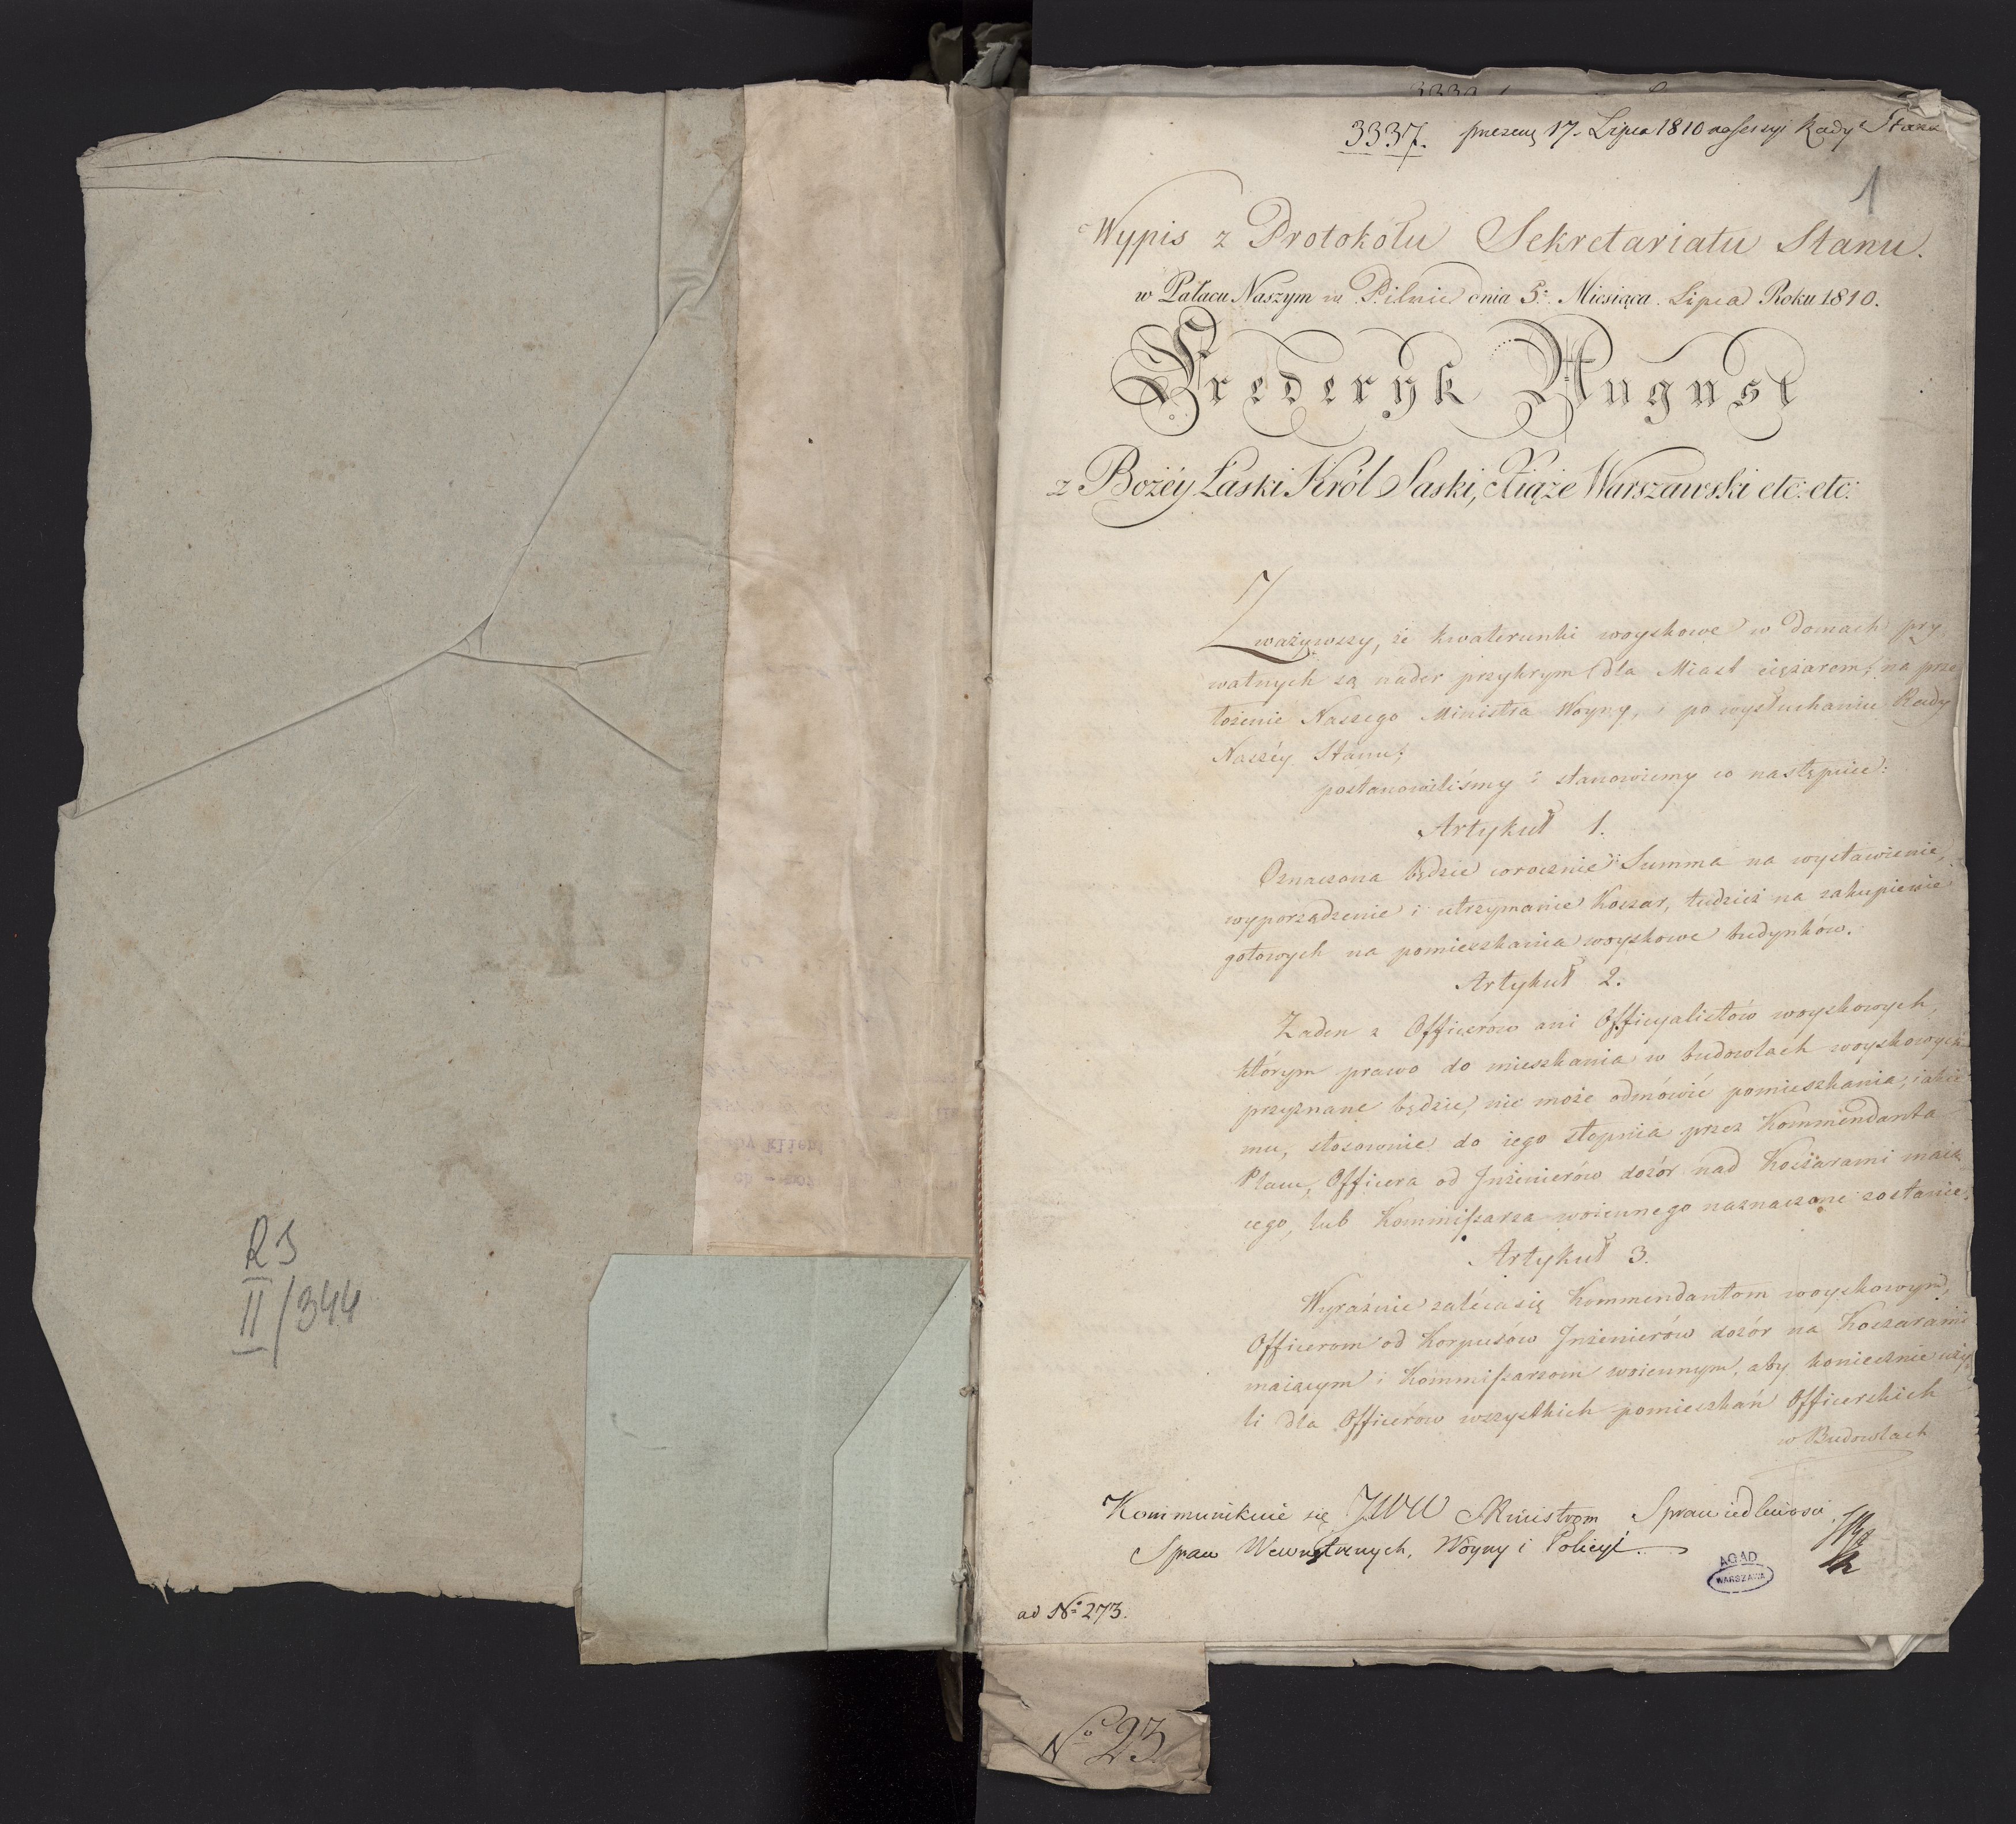 RS
II/344
3337. praezen 17. Lipca 1810 na sessyi Rady Stanu
1
Wypis z Protokółu Sekretariatu Stanu.
w Pałacu Naszym w Pilnie dnia 5. Miesiąca Lipca Roku 1810.
Fryderyk August
z Bożéy Łaski Król Saski, Xiąże Warszawski etc: etc:
Zważywszy, że kwaterunki woyskowe w domach pry
watnych są nader przykrym dla Miast ciężarem; na prze
łożenie Naszego Ministra Woyny, i po wysłuchaniu Rady
Naszéy Stanu;
postanowiliśmy i stanowiemy co następuie:
Artykuł 1.
Oznaczona będzie corocznie Summa na wystawienie,
wyporządzenie i utrzymanie Koszar, tudzież na zakupienie
gotowych na pomieszkania woyskowe budynków.
Artykuł 2.
Żaden z Officerów ani Officyalistów woyskowych,
którym prawo do mieszkania w budowlach woyskowych
przyznane będzie, nie może odmówić pomieszkania, iakie
mu, stosownie do iego stopnia przez Kommendanta
Placu, Officera od Inżenierów dozór nad Koszarami maią
cego, lub Kommissarza woiennego naznaczone zostanie.
Artykuł 3.
Wyraźnie zaléca się Kommendantom woyskowym,
Officerom od Korpusów Inżenierów dozór na Koszarami
maiącym i Kommissarzom woiennym, aby koniecznie uży
li dla Officerów wszystkich pomieszkań Officerskich
w Budowlach
Kommunikuie się JWW Ministrom Sprawiedliwości
Spraw Wewnętrznych, Woyny i Policyi.
AGAD
WARSZAWA
ad No 273.
No 23